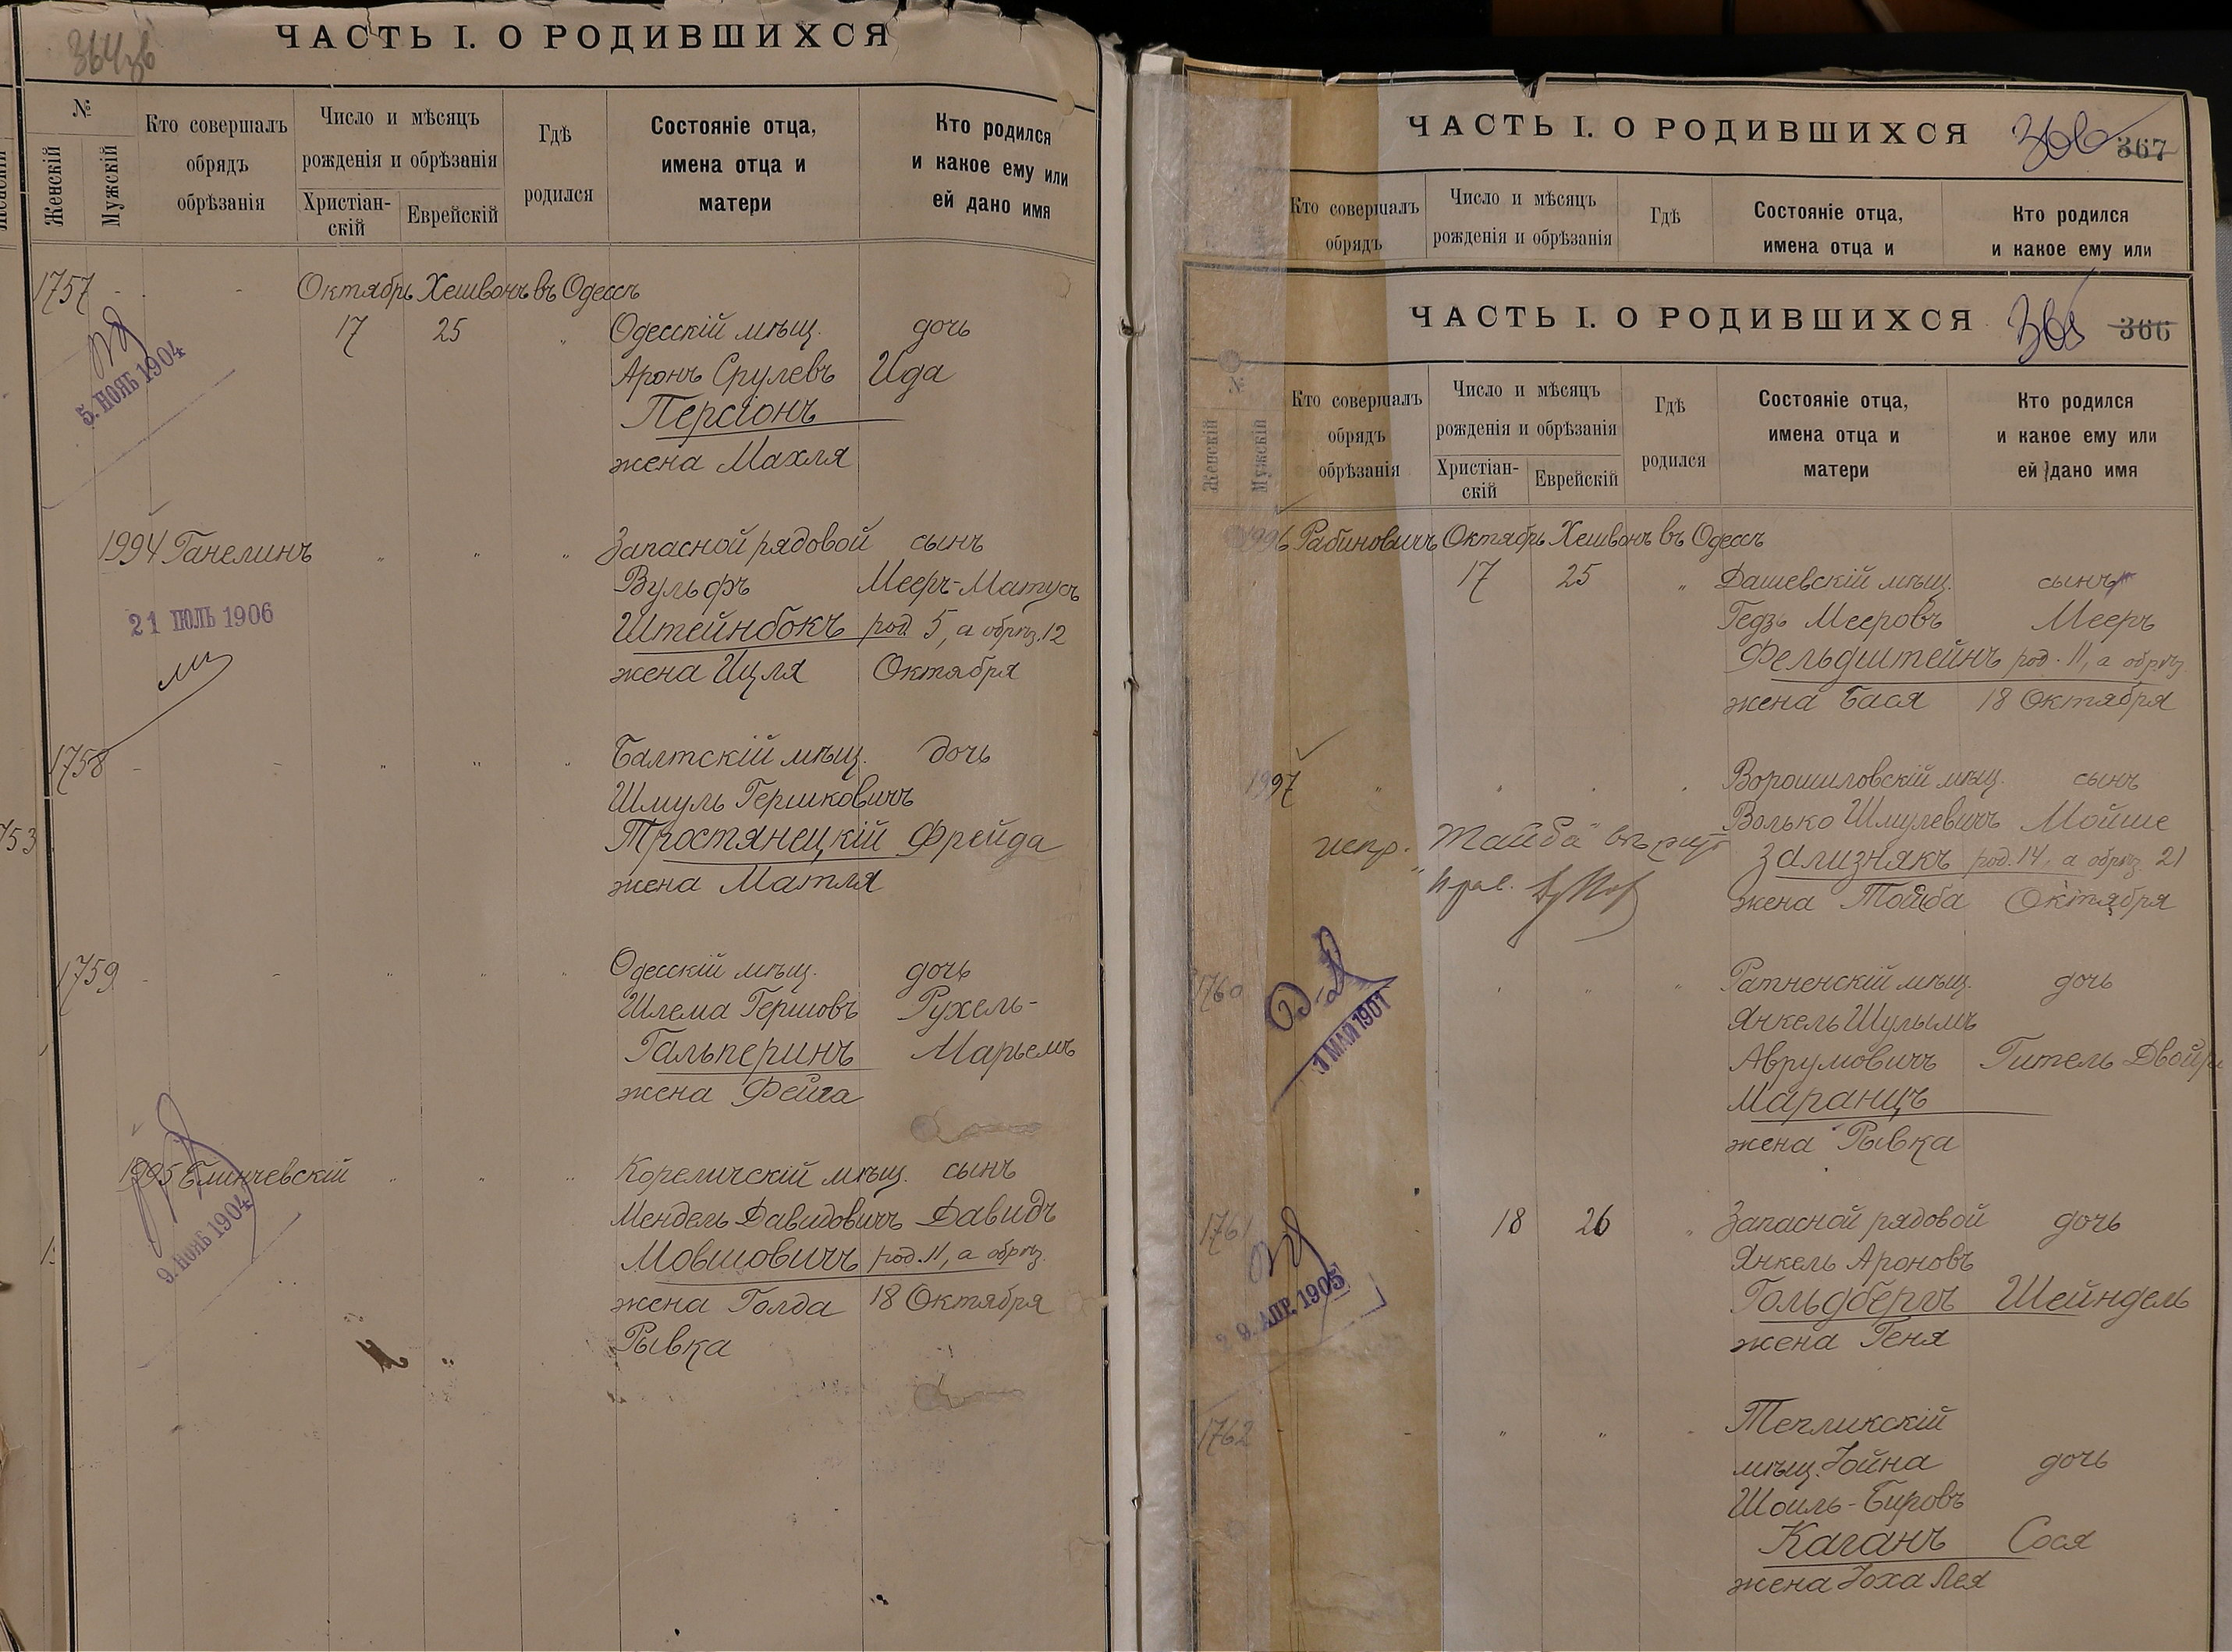 ЧАСТЬ I. О РОДИВШИХСЯ
№
Женскій
Мужскій
Кто совершалъ
обрядъ
обрѣзанія
Число и мѣсяцъ
рожденія и обрѣзанія
Христіан-
скій
Еврейскій
Гдѣ
родился
Состояніе отца,
имена отца и
матери
Кто родился
и какое ему или
ей дано имя
1757 - - Октябрь Хешвонъ въ Одессѣ
17 25 " Одесскій мѣщ. дочь
Аронъ Срулевъ Ида
Персіонъ
жена Махля
5. НОЯБ 1904
1994 Ганелинъ " " " Запасной рядовой сынъ
Вульфъ Мееръ-Матусъ
Штейнбокъ род. 5, а обрѣз. 12
жена Цуля Октября
21 ІЮЛЬ 1906
1758 - - " " " Балтскій мѣщ. дочь
Шмуль Гершковичъ
Тростянецкій Фрейда
жена Матля
753
1759 - - " " " Одесскій мѣщ. дочь
Шлема Гершовъ Рухель-
Гальперинъ Марьемъ
жена Фейга
1995 Блинчевскій " " " Корелическій мѣщ. сынъ
Мендель Давидовичъ Давидъ
Мовшовичъ род. 11, а обрѣз.
жена Голда 18 Октября
Рывка
ЧАСТЬ I. О РОДИВШИХСЯ 366 367
Кто совершалъ
обрядъ
Число и мѣсяцъ
рожденія и обрѣзанія
Гдѣ
Состояніе отца,
имена отца и
Кто родился
и какое ему или
ЧАСТЬ I. О РОДИВШИХСЯ 365 366
№
Женскій
Мужскій
Кто совершалъ
обрядъ
обрѣзанія
Число и мѣсяцъ
рожденія и обрѣзанія
Христіан-
скій
Еврейскій
Гдѣ
родился
Состояніе отца,
имена отца и
матери
Кто родился
и какое ему или
ей дано имя
1996 Рабиновичъ Октябрь Хешвонъ въ Одессѣ
17 25 " Дашевскій мѣщ. сынъ
Гедзь Мееровъ Мееръ
Фельдштейнъ род. 11, а обрѣз.
жена Бася 18 Октября
1997 " " " " Ворошиловскій мѣщ. сынъ
Волько Шмулевичъ Мойше
испр. "Тайба" въ
Зализнякъ род. 14, а обрѣз. 21
жена Тойба Октября
1760 " " " Ратненскій мѣщ. дочь
Янкель Шулымъ
Аврумовичъ Гитель Двойра
Маранцъ
жена Рывка
1 МАЙ 1907
1761 18 26 " Запасной рядовой дочь
Янкель Ароновъ
Гольдбергъ Шейндель
жена Геня
29. АПР. 1905
1762 - " " " Тепликскій
мѣщ. Іойна дочь
Шоиль-Бировъ
Каганъ Сося
жена Іоха Лея